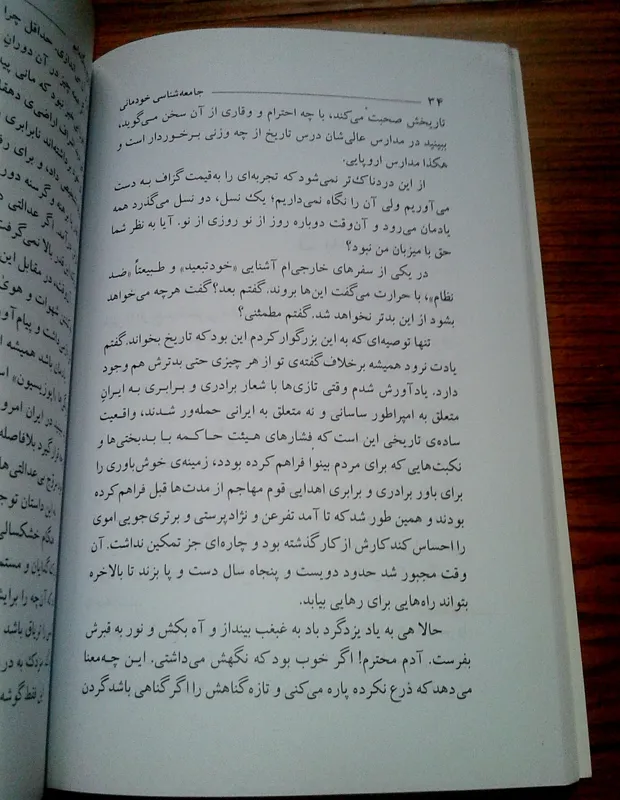 ۳۴ جامعه‌شناسی خودمانی
تاریخش صحبت می‌کند، با چه احترام و وقاری از آن سخن می‌گوید،
ببینید در مدارس عالی‌شان درس تاریخ از چه وزنی برخوردار است و
هکذا مدارس اروپایی.
از این دردناک‌تر نمی‌شود که تجربه‌ای را به‌قیمت گزاف به دست
می‌آوریم ولی آن را نگاه نمی‌داریم؛ یک نسل، دو نسل می‌گذرد همه
یادمان می‌رود و آن‌وقت دوباره روز از نو روزی از نو. آیا به نظر شما
حق با میزبان من نبود؟
در یکی از سفرهای خارجی‌ام آشنایی «خودتبعید» و طبیعتاً «ضد
نظام»، با حرارت می‌گفت این‌ها بروند. گفتم بعد؟ گفت هرچه می‌خواهد
بشود از این بدتر نخواهد شد. گفتم مطمئنی؟
تنها توصیه‌ای که به این بزرگوار کردم این بود که تاریخ بخواند. گفتم
یادت نرود همیشه برخلاف گفته‌ی تو از هر چیزی حتی بدترش هم وجود
دارد. یادآورش شدم وقتی تازی‌ها با شعار برادری و برابری به ایرانِ
متعلق به امپراطور ساسانی و نه متعلق به ایرانی حمله‌ور شدند، واقعیت
ساده‌ی تاریخی این است که فشارهای هیئت حاکمه با بدبختی‌ها و
نکبت‌هایی که برای مردم بینوا فراهم کرده بودد، زمینه‌ی خوش‌باوری را
برای باور برادری و برابری اهدایی قوم مهاجم از مدت‌ها قبل فراهم کرده
بودند و همین طور شد که تا آمد تفرعن و نژادپرستی و برتری‌جویی اموی
را احساس کند کارش از کار گذشته بود و چاره‌ای جز تمکین نداشت. آن
وقت مجبور شد حدود دویست و پنجاه سال دست و پا بزند تا بالاخره
بتواند راه‌هایی برای رهایی بیابد.
حالا هی به یاد یزدگرد باد به غبغب بینداز و آه بکش و نور به قبرش
بفرست. آدم محترم! اگر خوب بود که نگهش می‌داشتی. این چه‌معنا
می‌دهد که ذرع نکرده پاره می‌کنی و تازه گناهش را اگر گناهی باشد گردن